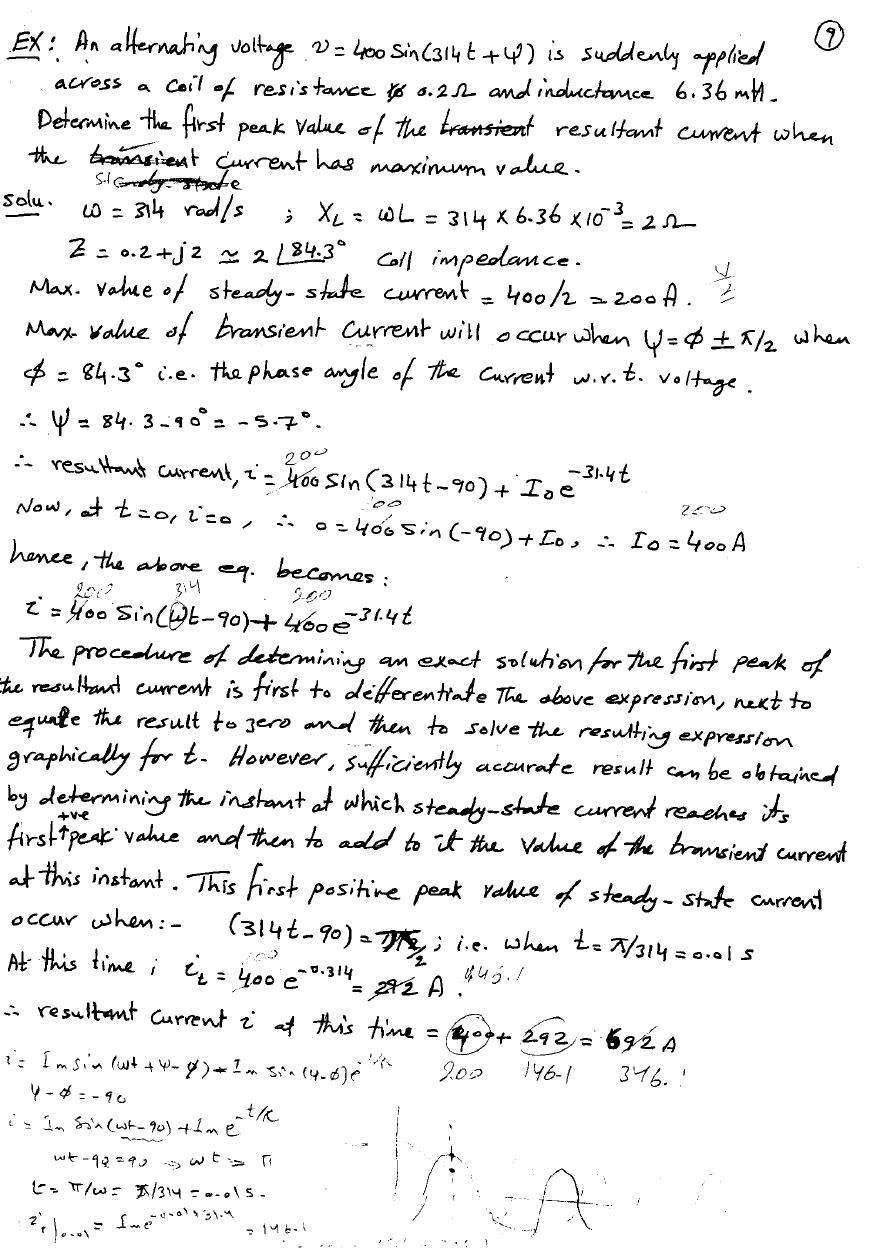 9
EX: An alternating voltage v = 400 Sin(314t + ψ) is suddenly applied
across a coil of resistance 0.2Ω and inductance 6.36 mH.
Determine the first peak value of the transient resultant current when
the transient current has maximum value.
steady-state
Solu. ω = 314 rad/s ; XL = ωL = 314 × 6.36 × 10⁻³ = 2Ω
Z = 0.2 + j2 ≃ 2∠84.3° Coil impedance.
Max. value of steady-state current = 400/2 = 200A.
Max. value of transient Current will occur when ψ = φ ± π/2 when
φ = 84.3° i.e. the phase angle of the current w.r.t. voltage.
∴ ψ = 84.3 - 90° = -5.7°.
200
∴ resultant current, i = 400 Sin(314t - 90) + I₀e^-31.4t
00 200
Now, at t=0, i=0, ∴ 0 = 400 Sin(-90) + I₀, ∴ I₀ = 400A
hence, the above eq. becomes:
200 314 200
i = 400 Sin(ωt-90) + 400e^-31.4t
The procedure of determining an exact solution for the first peak of
the resultant current is first to differentiate The above expression, next to
equate the result to zero and then to solve the resulting expression
graphically for t. However, sufficiently accurate result can be obtained
by determining the instant at which steady-state current reaches its
+ve
first peak value and then to add to it the value of the transient current
at this instant. This first positive peak value of steady-state current
occur when:- (314t - 90) = π/2 ; i.e. when t = π/314 = 0.01 s
At this time ; it = 400 e^-0.314 = 292 A.
∴ resultant current i at this time = 400 + 292 = 692 A
i = Im Sin(ωt + ψ - φ) - Im Sin(ψ-φ)e 200 146.1 346.1
ψ - φ = -90
i = Im Sin(ωt-90) + Im e^-t/
ωt - 90 = 90 ⇒ ωt = π
t = π/ω = π/314 = 0.01 s.
= 146.1